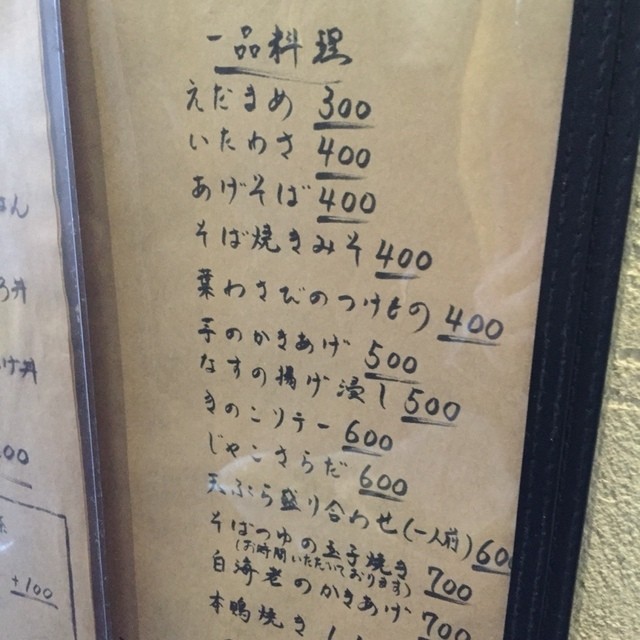 一品料理
えだまめ 300
いたわさ 400
あげそば 400
そば焼きみそ 400
葉わさびのつけもの 400
芋のかきあげ 500
なすの揚げ浸し 500
きのこソテー 600
じゃこさらだ 600
天ぷら盛り合わせ(一人前) 600
そばつゆの玉子焼き 700
(お時間いただいております)
白海老のかきあげ 700
本鴨焼き
丼
げ丼
00
+100